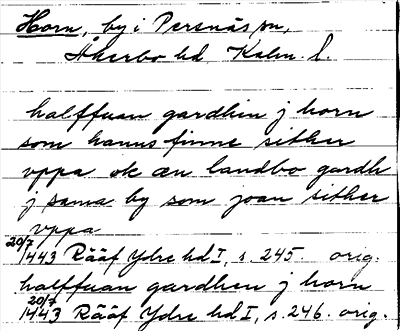 Horn, by i Persnäs sn,
Åkerbo hd Kalm. l.
halffuan gardhin j horn
som hannis finne sither
vppa ok æn landbo gardh
j sama by som joan sither
vppa
20/7 1443 Rääf Ydre hd I, s. 245. orig.
halffuan gardhen j horn
20/7 1443 Rääf Ydre hd I, s. 246. orig.